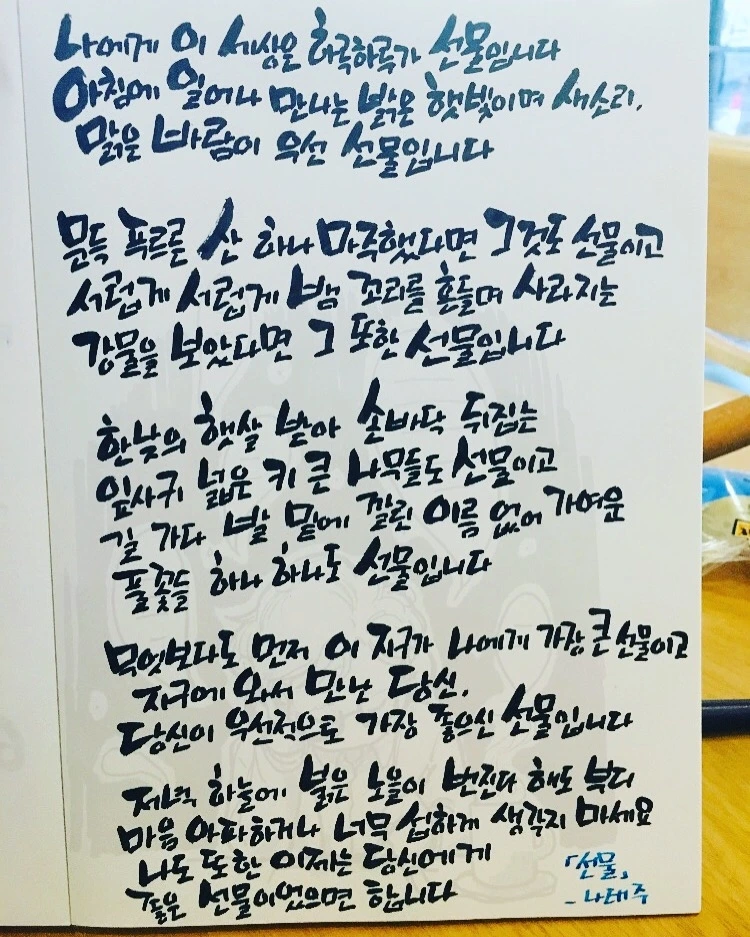 나에게 이 세상은 하루하루가 선물입니다
아침에 일어나 만나는 밝은 햇빛이며 새소리,
맑은 바람이 우선 선물입니다
문득 푸르른 산 하나 마주했다면 그것도 선물이고
서럽게 서럽게 뱀 꼬리를 흔들며 사라지는
강물을 보았다면 그 또한 선물입니다
한낮의 햇살 받아 손바닥 뒤집는
잎사귀 넓은 키 큰 나무들도 선물이고
길 가다 발 밑에 깔린 이름 없어 가여운
풀꽃들 하나 하나도 선물입니다
무엇보다도 먼저 이 지구가 나에게 가장 큰 선물이고
지구에 와서 만난 당신,
당신이 우선적으로 가장 좋으신 선물입니다
저녁 하늘에 붉은 노을이 번진다 해도 부디
마음 아파하거나 너무 섭하게 생각지 마세요
나도 또한 이제는 당신에게
좋은 선물이었으면 합니다
「선물」
- 나태주